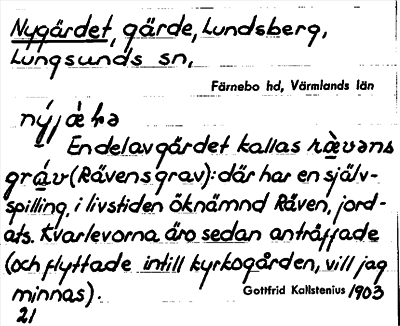 Nygärdet, gärde, Lundsberg,
Lungsunds sn,
Färnebo hd, Värmlands län
nýjæ̀ʜə
En del av gärdet kallas rævəns
gráv (Rävens grav): där har en själv-
spilling, i livstiden öknämnd Räven, jord-
ats. Kvarlevorna äro sedan anträffade
(och flyttade intill kyrkogården, vill jag
minnas).
Gottfrid Kallstenius 1903
21